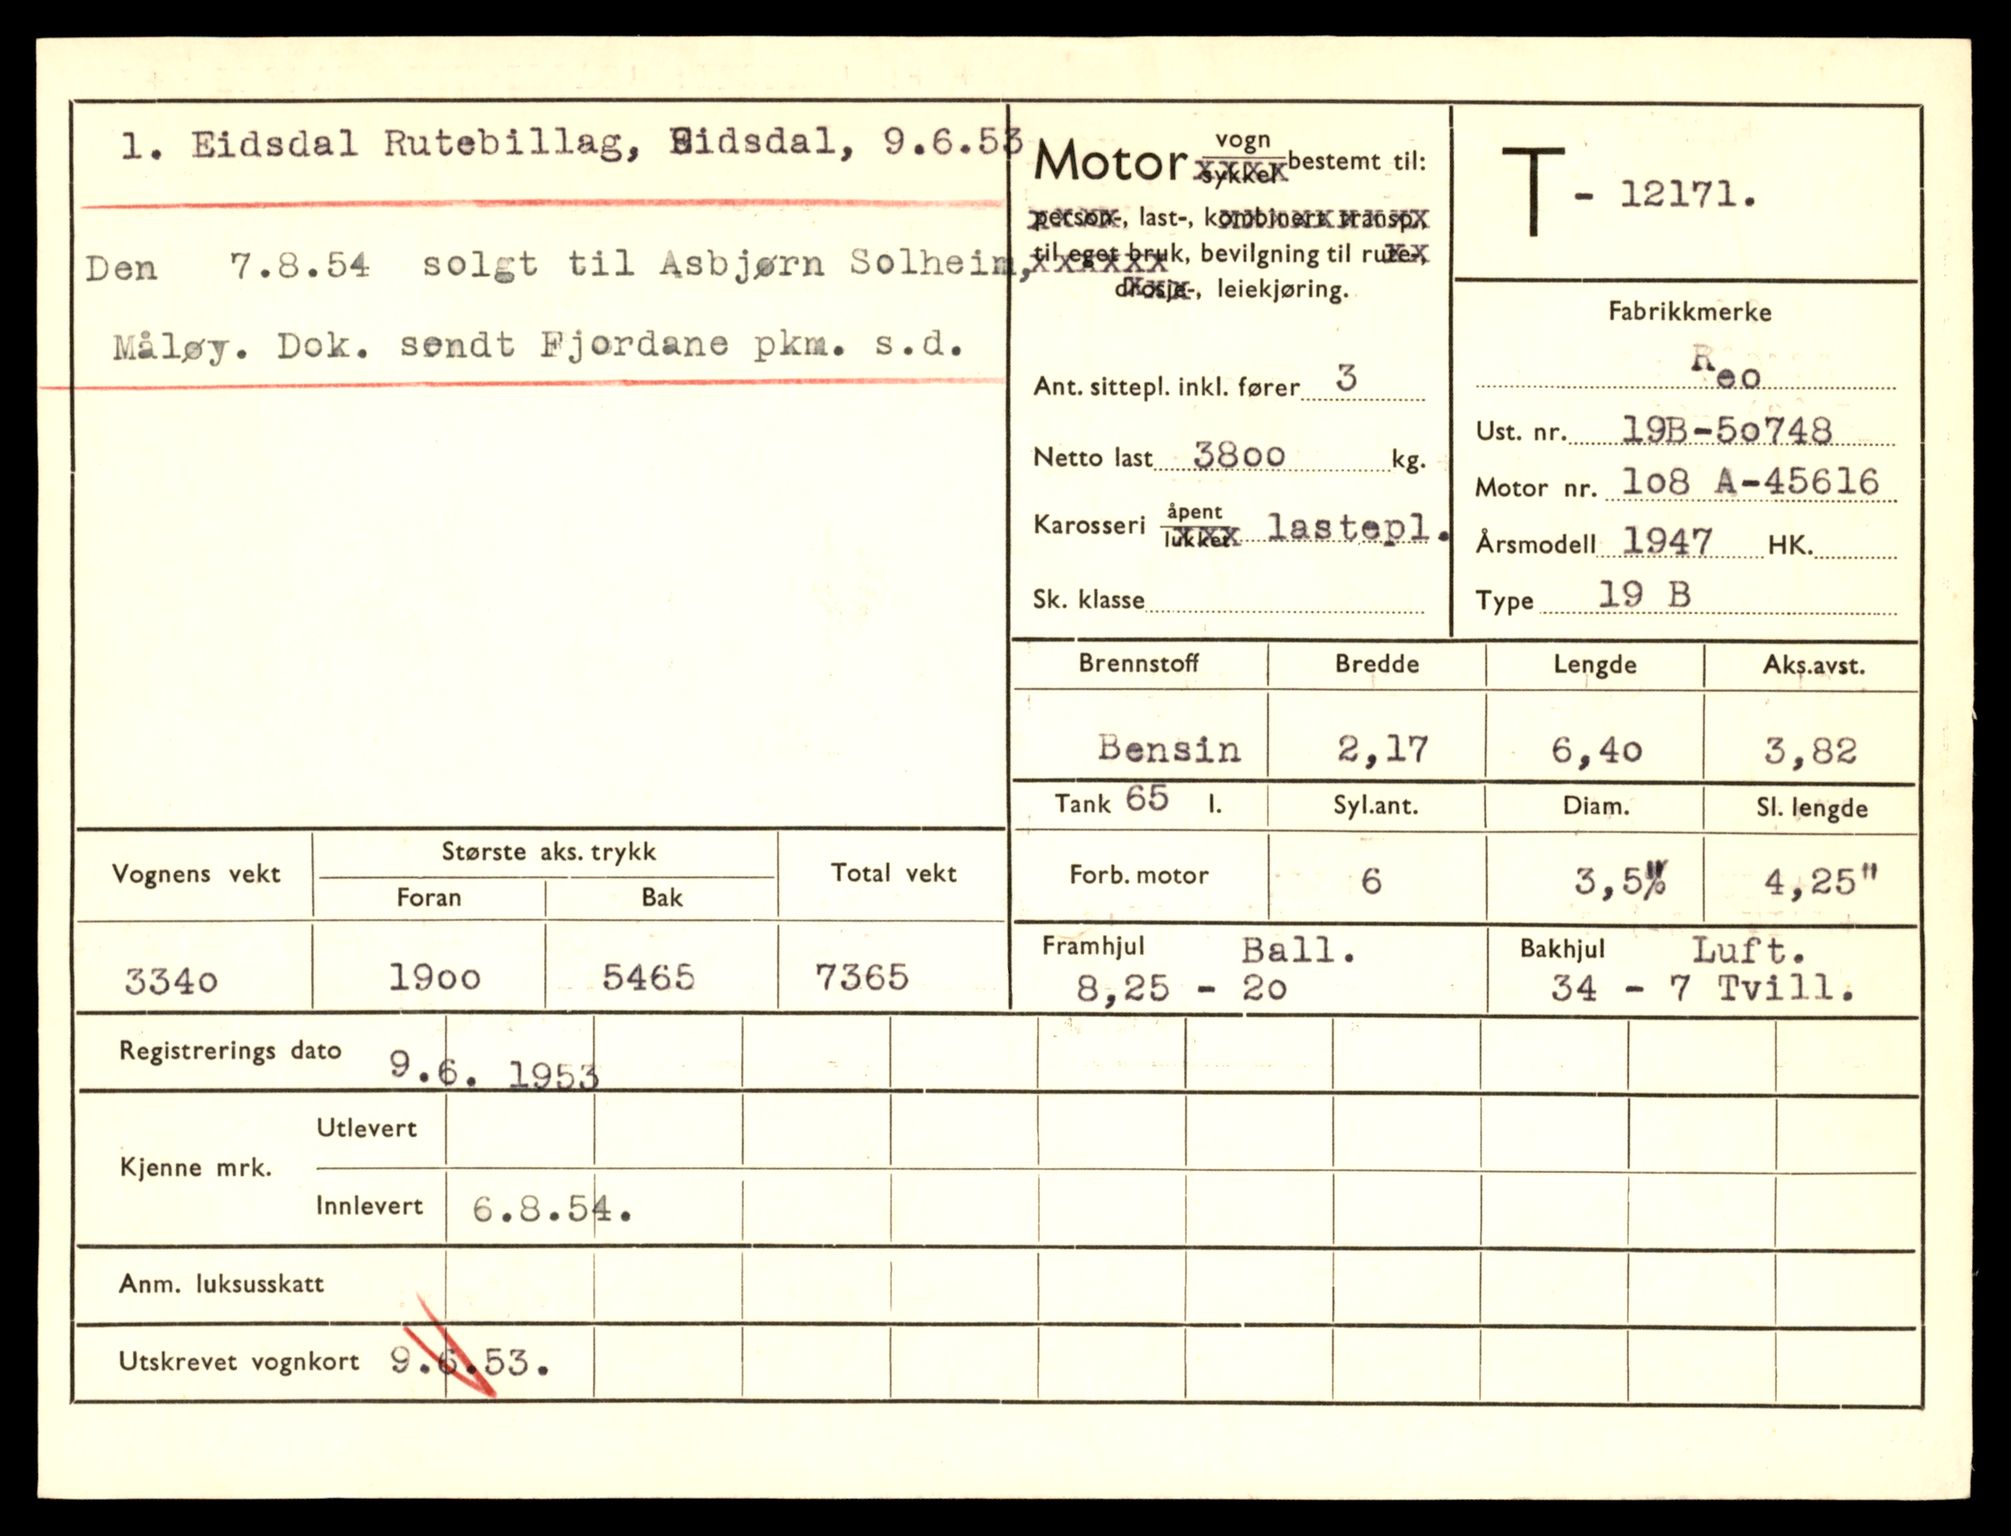 1. Eidsdal Rutebillag, Eidsdal, 9.6.53
Den 7.8.54 solgt til Asbjørn Solheim,
Måløy. Dok. sendt Fjordane pkm. s.d.
Motor vogn / sykkel bestemt til:
person-, last-, kombinert transp.,
til eget bruk, bevilgning til rute-,
drosje-, leiekjøring.
Ant. sittepl. inkl. fører 3
Netto last 3800 kg.
Karosseri åpent / lukket lastepl.
Sk. klasse
T - 12171.
Fabrikkmerke
Reo
Ust. nr. 19B-50748
Motor nr. 108 A-45616
Årsmodell 1947 HK.
Type 19 B
Brennstoff Bredde Lengde Aks.avst.
Bensin 2,17 6,40 3,82
Tank 65 l. Syl.ant. Diam. Sl. lengde
Forb. motor 6 3,5" 4,25"
Framhjul Ball.
8,25 - 20
Bakhjul Luft.
34 - 7 Tvill.
Vognens vekt Største aks. trykk Total vekt
Foran Bak
3340 1900 5465 7365
Registrerings dato 9.6. 1953
Kjenne mrk. Utlevert
Innlevert 6.8.54.
Anm. luksusskatt
Utskrevet vognkort 9.6.53.